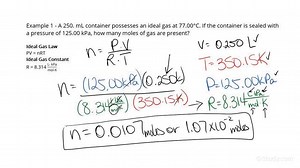 Example 1 - A 250. mL container possesses an ideal gas at 77.00°C. If the container is sealed with
a pressure of 125.00 kPa, how many moles of gas are present?
Ideal Gas Law
PV = nRT
Ideal Gas Constant
R = 8.314 L·kPa/mol·K
n = P·V / R·T
V = 0.250 L
T = 350.15 K
P = 125.00 kPa
R = 8.314 L·kPa/mol·K
n = (125.00 kPa)(0.250 L) / (8.314 L·kPa/mol·K)(350.15 K)
n = 0.0107 mols or 1.07×10⁻² mols